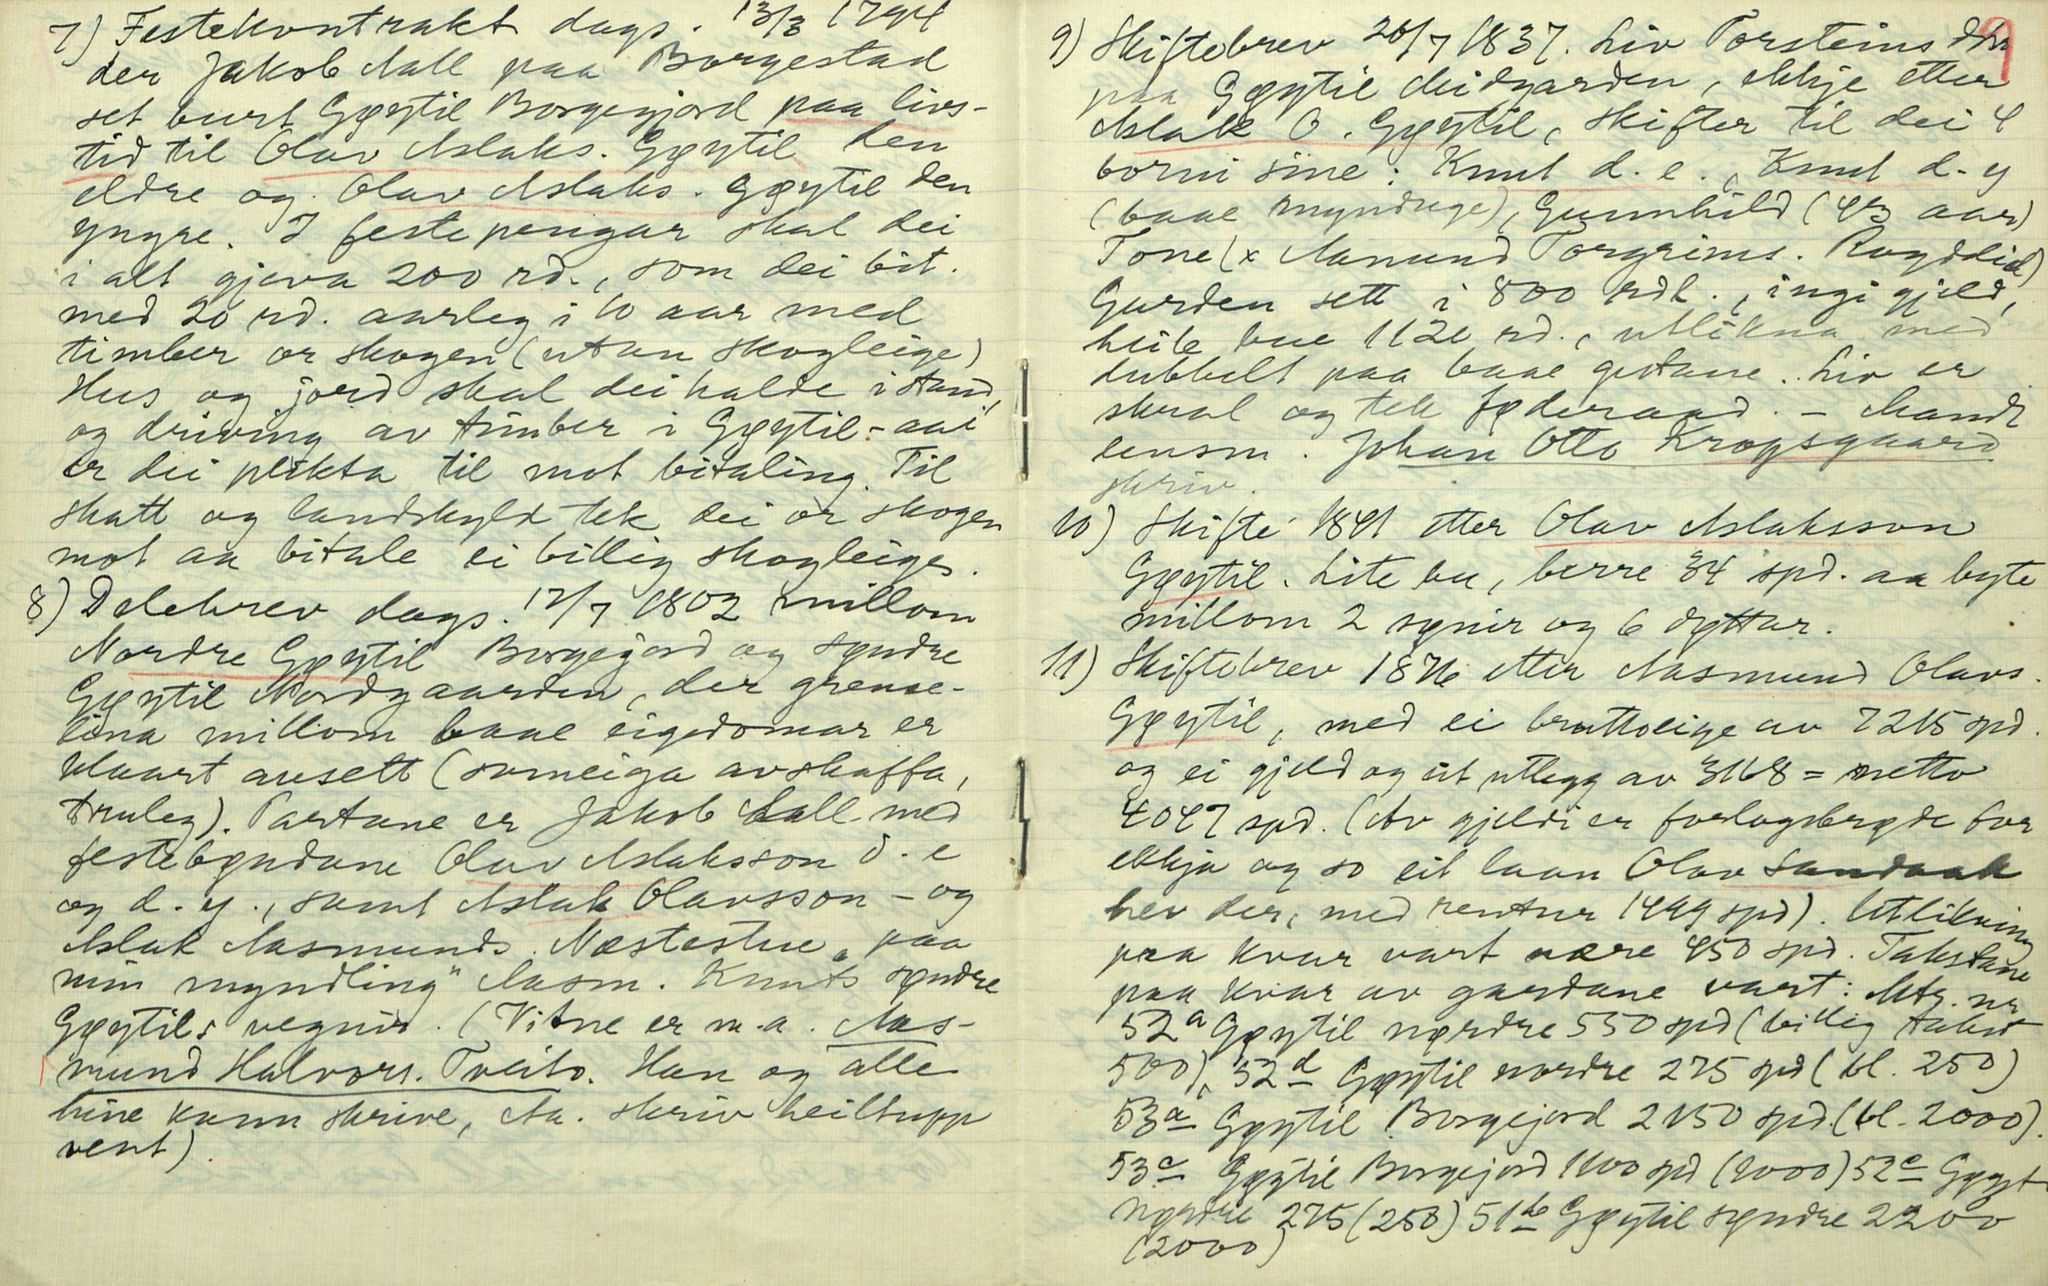 7) Festekontrakt dags. 13/3 1794
der Jakob Aall paa Borgestad
set burt Gøytil Borgegjord paa livs-
tid til Olav Aslaks. Gøytil den
eldre og Olav Aslaks. Gøytil den
yngre. I festepengar skal dei
i alt gjeva 200 rd., som dei bit.
med 20 rd. aarleg i 10 aar med
timber or skogen (utan skogleige)
Hus og jord skal dei halde i stand,
og driving av timber i Gøytil-aai
er dei plikta til mot bitaling. Til
skatt og landskyld tek dei or skogen
mot aa bitale ei billig skogleige.
8) Delebrev dags. 12/7 1802 millom
Nordre Gøytil Borgegjord og søndre
Gøytil Nordgaarden, der grense-
lina millom baae eigedomar er
klaart ansett (sameiga avskaffa,
truleg). Partane er Jakob Aall med
festebøndane Olav Aslaksson d. e
og d. y., samt Aslak Olavsson - og
Aslak Aasmunds. Næstestue „paa
min myndling" Aasm. Knuts søndre
Gøytils vegnir. (Vitne er m.a. Aas-
mund Halvors. Tveito. Han og alle
hine kann skrive, Aa. skriv heiltupp
vent).
9
9) Skiftebrev 20/7 1837. Liv Torsteins dtr
paa Gøytil Midgarden, ekkje etter
Aslak O. Gøytil, skifter til dei 4
borni sine: Knut d. e., Knut d. y
(baae mynduge), Gunnhild (43 aar)
Tone (x Aanund Torgrims. Rugdelid)
Garden sett i 800 rdl., ingi gjeld,
heile bue 1120 rd., utlikna med
dubbelt paa baae gutane. Liv er
skral og tek føderaad. - Mandt
lensm. Johan Otto Krogsgaard
skriv.
10) Skifte 1841 etter Olav Aslaksson
Gøytil. Lite bu, berre 34 spd. aa byte
millom 2 søner og 6 døttar.
11) Skiftebrev 1876 etter Aasmund Olavs.
Gøytil, med ei bruttoeige av 7215 spd.
og ei gjeld og ut utlegg av 3168 = netto
4047 spd. (Av gjeldi er forlogsbrøde for
ekkja og so eit laan Olav Sandaak
hev der, med rentur 1499 spd). Utlikning
paa kvar vart nære 450 spd. Takstane
paa kvar av gardane vart: Mtr. nr
52a Gøytil nørdre 550 spd (billig takst
500), 52d Gøytil nordre 275 spd (bl. 250)
53a Gøytil Borgejord 2150 spd. (bl. 2000).
53c Gøytil Borgejord 1100 spd (1000) 52c Gøyt-
nørdre 275 (250) 51b Gøytil søndre 2200
(2000)